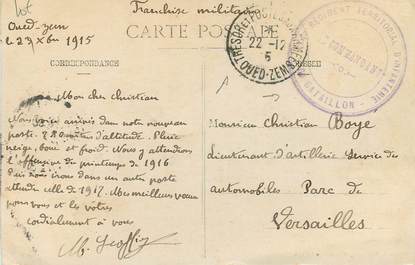 Franchise militaire
Oued-Zem
le 23 Xbre 1915
CARTE POSTALE
CORRESPONDANCE
TRESOR ET POSTES
22-12
5
OUED-ZEM
REGIMENT TERRITORIAL D'INFANTERIE
BATAILLON
Mon cher Christian
Nous voici arrivés dans notre nouveau
poste. 780 mètres d'altitude. Pluie
neige, boue et froid. Nous y attendrons
l'offensive de printemps de 1916
puis nous irons dans un autre poste
attendre celle de 1917. Mes meilleurs vœux
pour vous et les vôtres
cordialement à vous
Monsieur Christian Boye
Lieutenant d'artillerie Service des
automobiles Parc de
Versailles